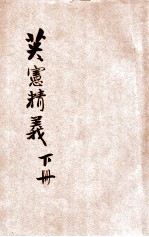 英憲精義下冊